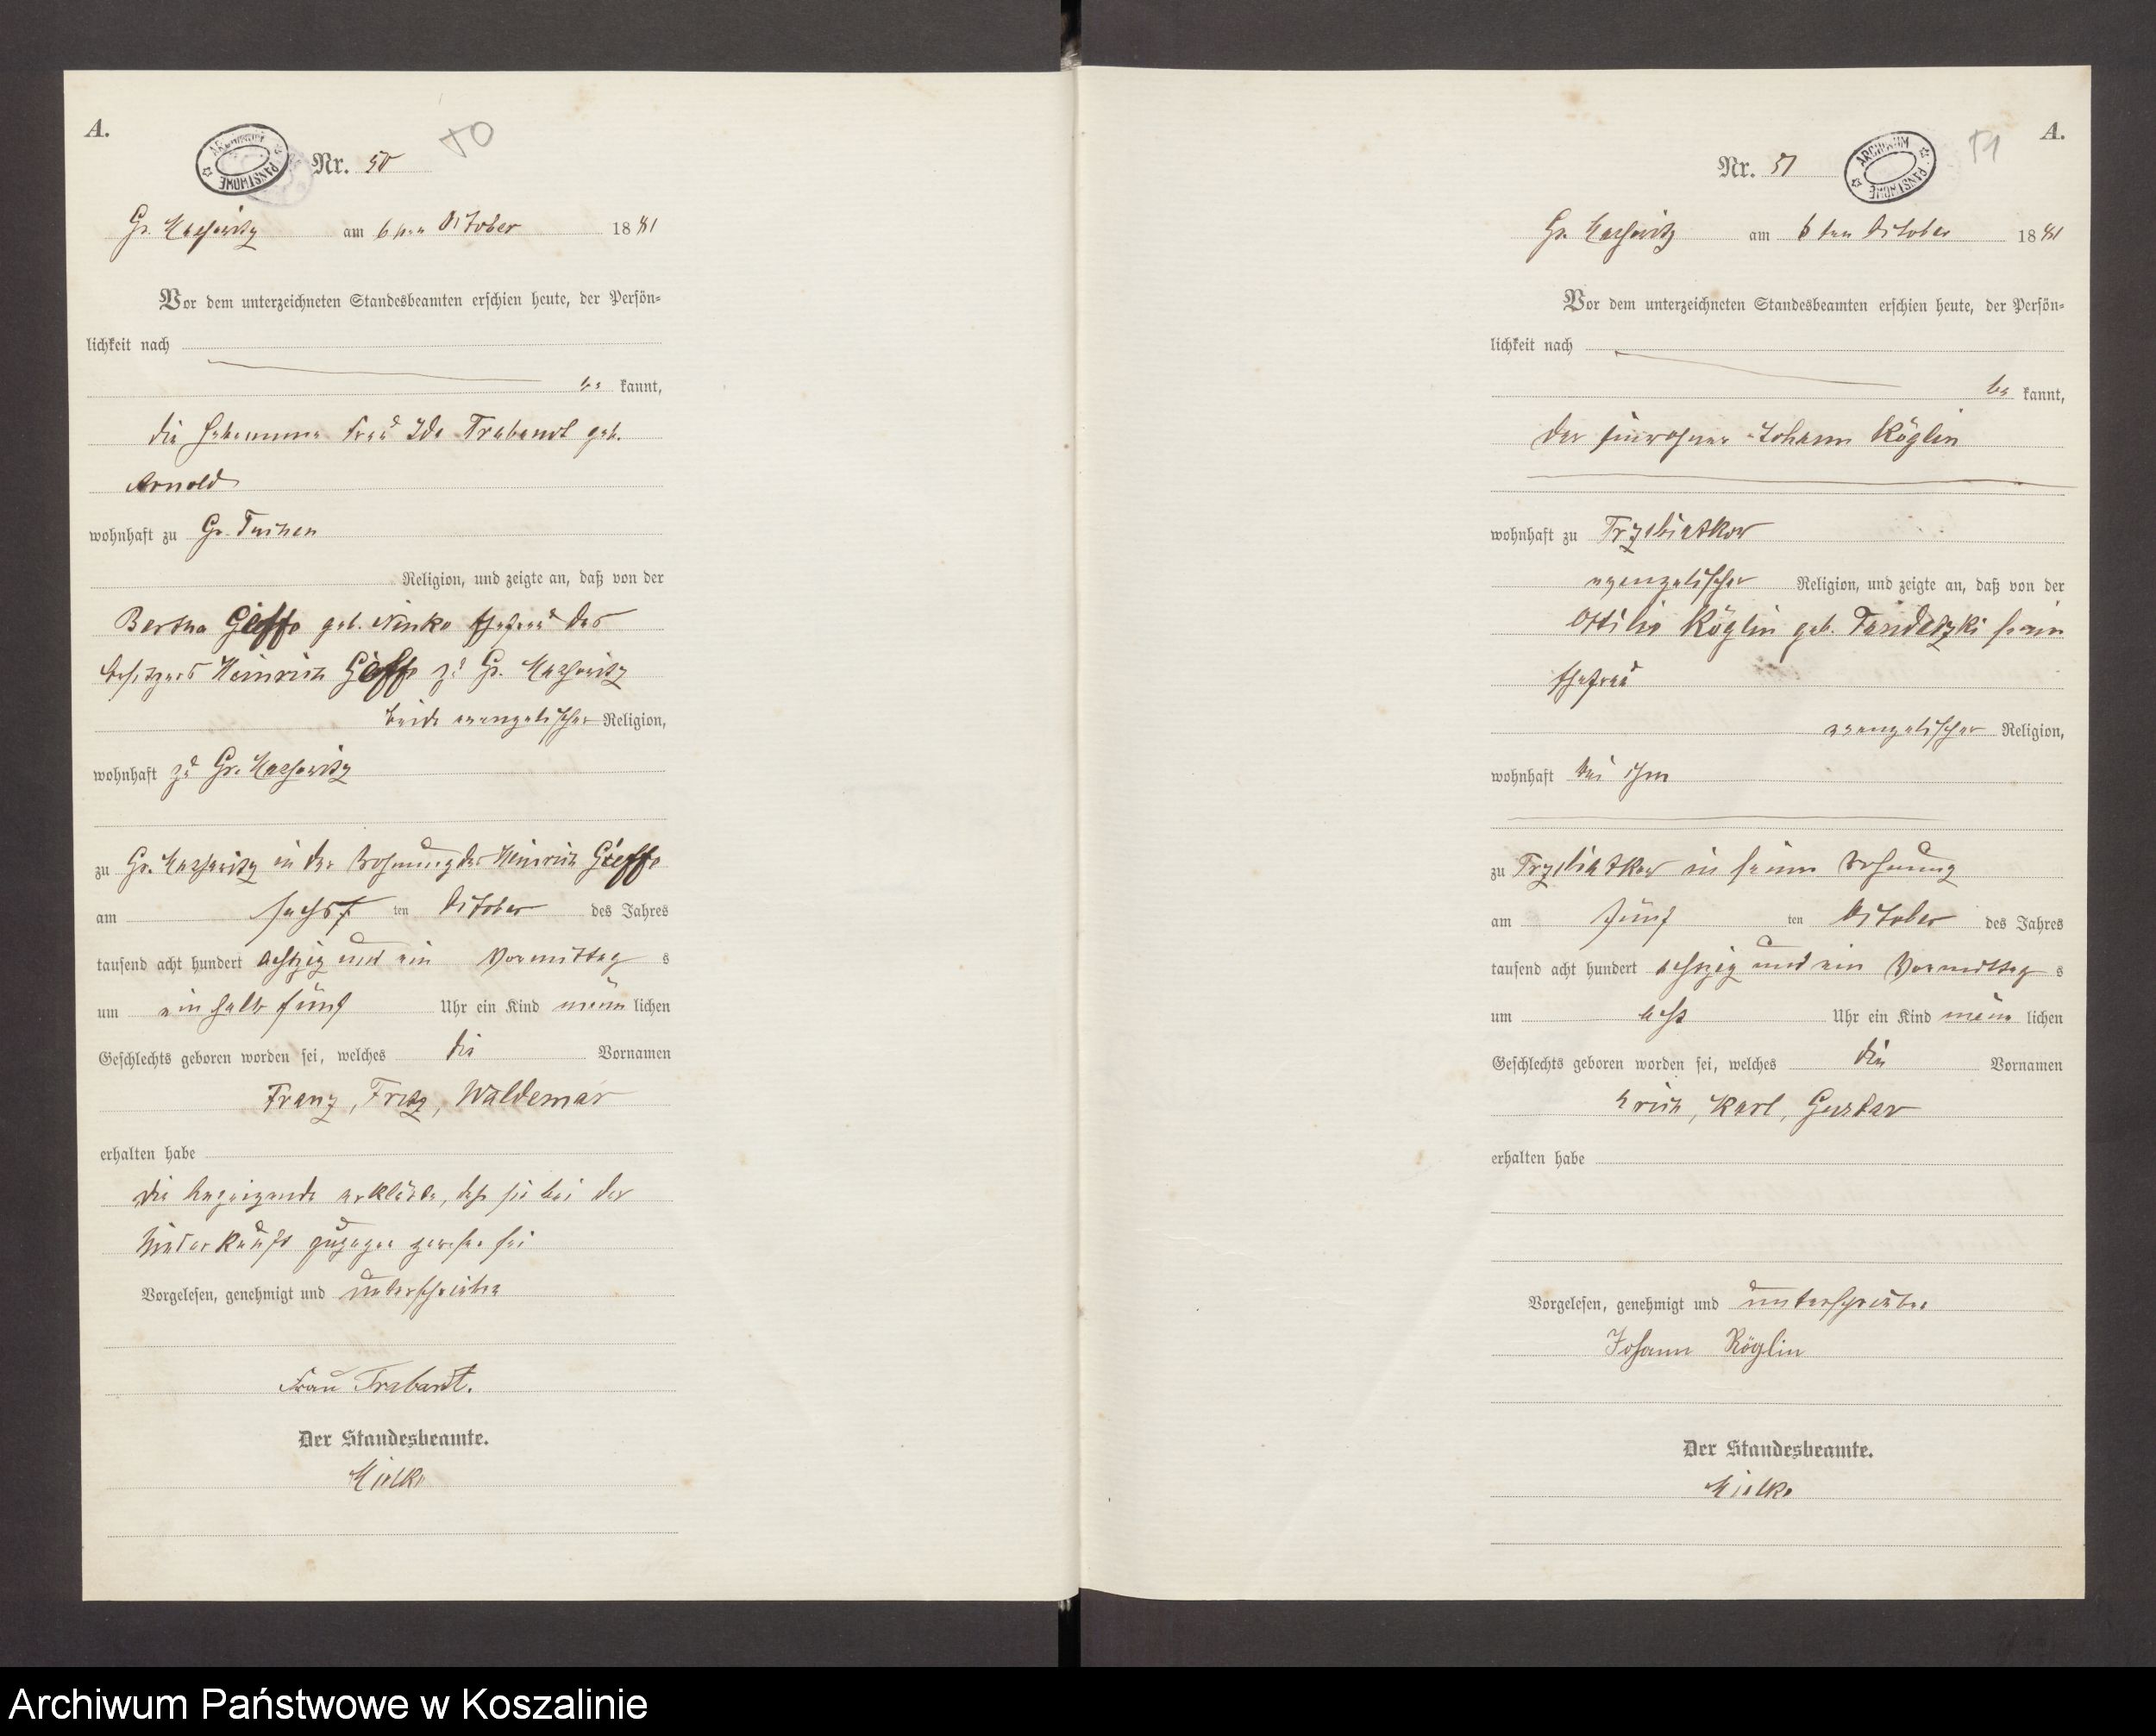 A.
ARCHIWUM PAŃSTWOWE
Nr. 50
50
Gr. Massowitz am 6ten October 1881
Vor dem unterzeichneten Standesbeamten erschien heute, der Persön-
lichkeit nach
be kannt,
die Hebamme Frau Ida Trabandt geb.
Arnold
wohnhaft zu Gr. Tuchen
Religion, und zeigte an, daß von der
Bertha geb. Ehefrau des
Besitzers Heinrich zu Gr. Massowitz
beide evangelischer Religion,
wohnhaft zu Gr. Massowitz
zu Gr. Massowitz in der Wohnung des Heinrich
am sechst ten October des Jahres
tausend acht hundert achtzig und ein Vormittag s
um ein halb fünf Uhr ein Kind männ lichen
Geschlechts geboren worden sei, welches die Vornamen
Franz, Fritz, Waldemar
erhalten habe
Die Anzeigende erklärte, daß sie bei der
Niederkunft zugegen gewesen sei
Vorgelesen, genehmigt und unterschrieben
Frau Trabandt.
Der Standesbeamte.
Mielke
A.
Nr. 51
ARCHIWUM PAŃSTWOWE
51
Gr. Massowitz am 6ten October 1881
Vor dem unterzeichneten Standesbeamten erschien heute, der Persön-
lichkeit nach
be kannt,
der Einwohner Johann Röglin
wohnhaft zu Trzebiatkow
evangelischer Religion, und zeigte an, daß von der
Ottilie Röglin geb. seiner
Ehefrau
evangelischer Religion,
wohnhaft bei ihm
zu Trzebiatkow in seiner Wohnung
am fünf ten October des Jahres
tausend acht hundert achtzig und ein Vormittag s
um acht Uhr ein Kind männ lichen
Geschlechts geboren worden sei, welches die Vornamen
Erich, Karl, Gustav
erhalten habe
Vorgelesen, genehmigt und unterschrieben
Johann Röglin
Der Standesbeamte.
Mielke
Archiwum Państwowe w Koszalinie